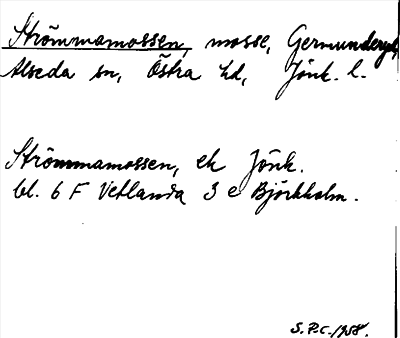 Strömmamossen, mosse, Germunderyd,
Alseda sn, Östra hd, Jönk. l.
Strömmamossen, ek Jönk.
bl. 6 F Vetlanda 3 e Björkholm.
S.P.C. 1958.